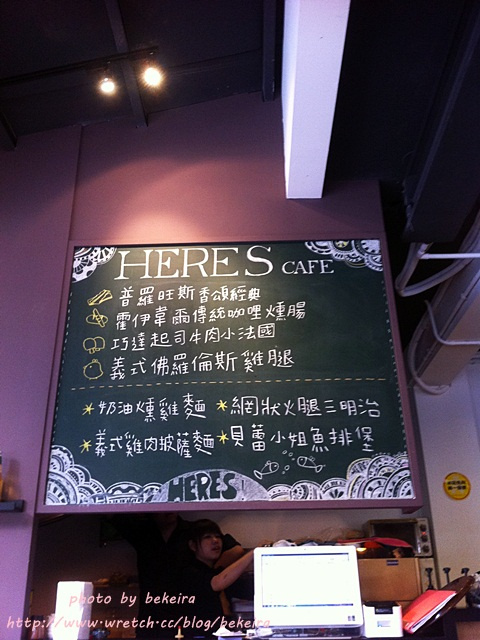 HERES CAFE
普羅旺斯香頌經典
霍伊韋爾傳統咖哩燻腸
巧達起司牛肉小法國
義式佛羅倫斯雞腿
奶油燻雞麵 網狀火腿三明治
義式雞肉披薩麵 貝蕾小姐魚排堡
HERES
photo by bekeira
http://www.wretch.cc/blog/bekeira